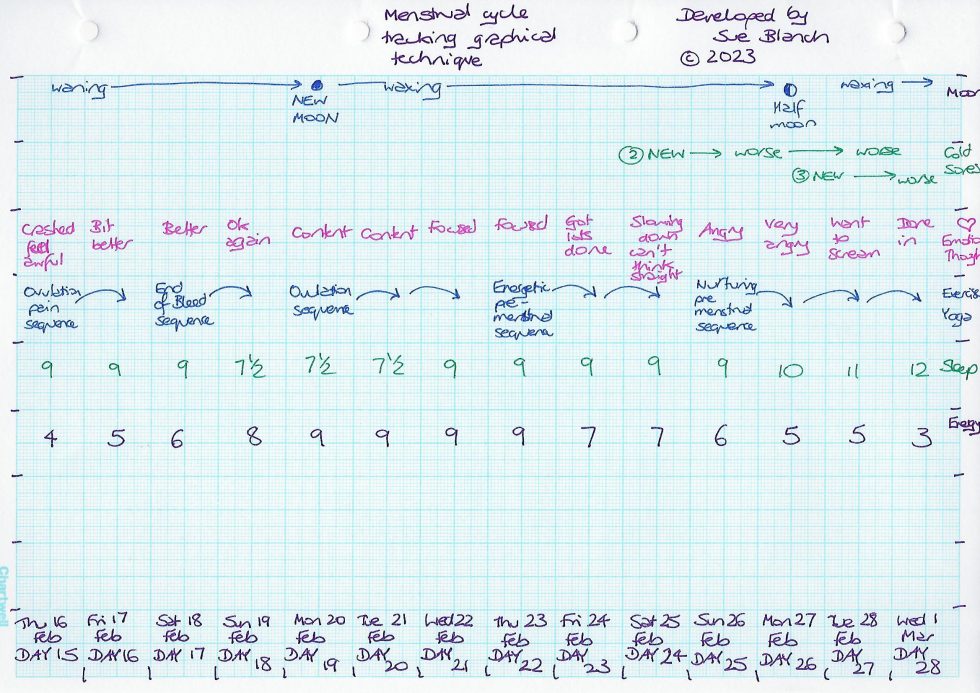 Menstrual cycle
tracking graphical
technique
Developed by
Sue Blanch
© 2023
waning
NEW
MOON
waxing
Half
moon
waxing
Moon
② NEW worse worse
Cold
Sores
③ NEW worse
Crashed
feel
awful
Bit
better
Better
Ok
again
Content
Content
Focused
Focused
Got
lots
done
Slowing
down
can't
think
straight
Angry
Very
angry
Want
to
scream
Done
in
♡
Emotio
Though
Ovulation
pain
sequence
End
of Bleed
sequence
Ovulation
sequence
Energetic
pre-
menstrual
sequence
Nurturing
pre
menstrual
sequence
Exercis
Yoga
9 9 9 7½ 7½ 7½ 9 9 9 9 9 10 11 12 Sleep
4 5 6 8 9 9 9 9 7 7 6 5 5 3 Energy
Chartwell
Thu 16
Feb
DAY 15
Fri 17
Feb
DAY 16
Sat 18
Feb
DAY 17
Sun 19
Feb
DAY
18
Mon 20
Feb
DAY
19
Tue 21
Feb
DAY
20
Wed 22
Feb
DAY
21
Thu 23
Feb
DAY
22
Fri 24
Feb
DAY
23
Sat 25
Feb
DAY 24
Sun 26
Feb
DAY 25
Mon 27
Feb
DAY 26
Tue 28
Feb
DAY
27
Wed 1
Mar
DAY
28